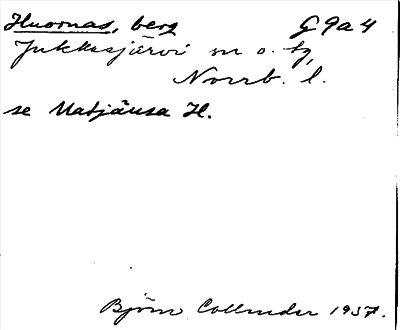 Huornas, berg G 9a 4
Jukkasjärvi sn o. tg,
Norrb. l.
se Matjäusa H.
Björn Collinder 1937.